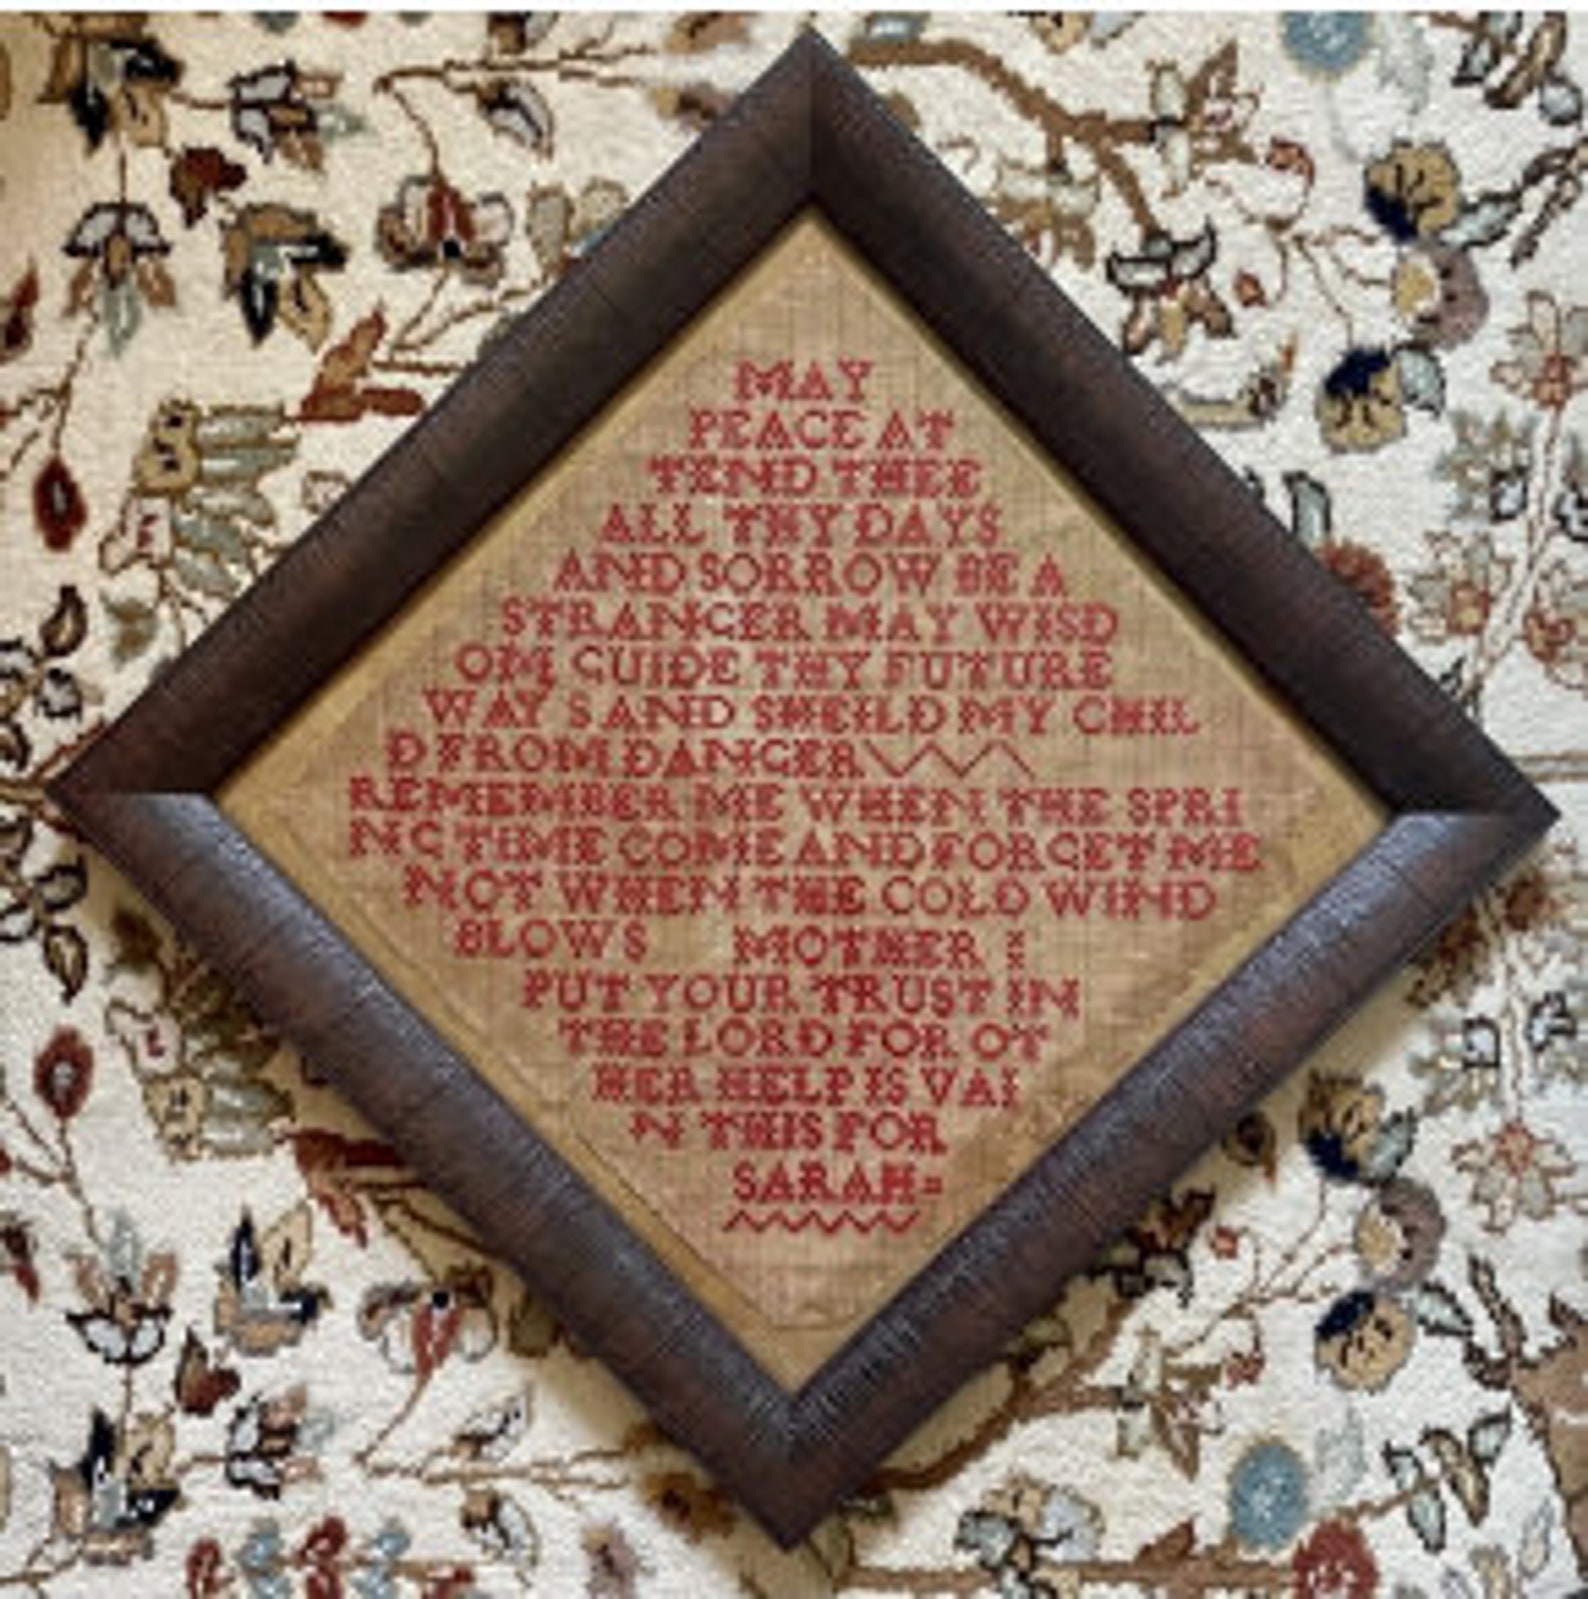 MAY
PEACE AT
TEND THEE
ALL THY DAYS
AND SORROW BE A
STRANGER MAY WISD
OM GUIDE THY FUTURE
WAY S AND SHEILD MY CHIL
D FROM DANGER
REMEMBER ME WHEN THE SPRI
NG TIME COME AND FORGET ME
NOT WHEN THE COLD WIND
BLOWS MOTHER
PUT YOUR TRUST IN
THE LORD FOR OT
HER HELP IS VAI
N THIS FOR
SARAH=